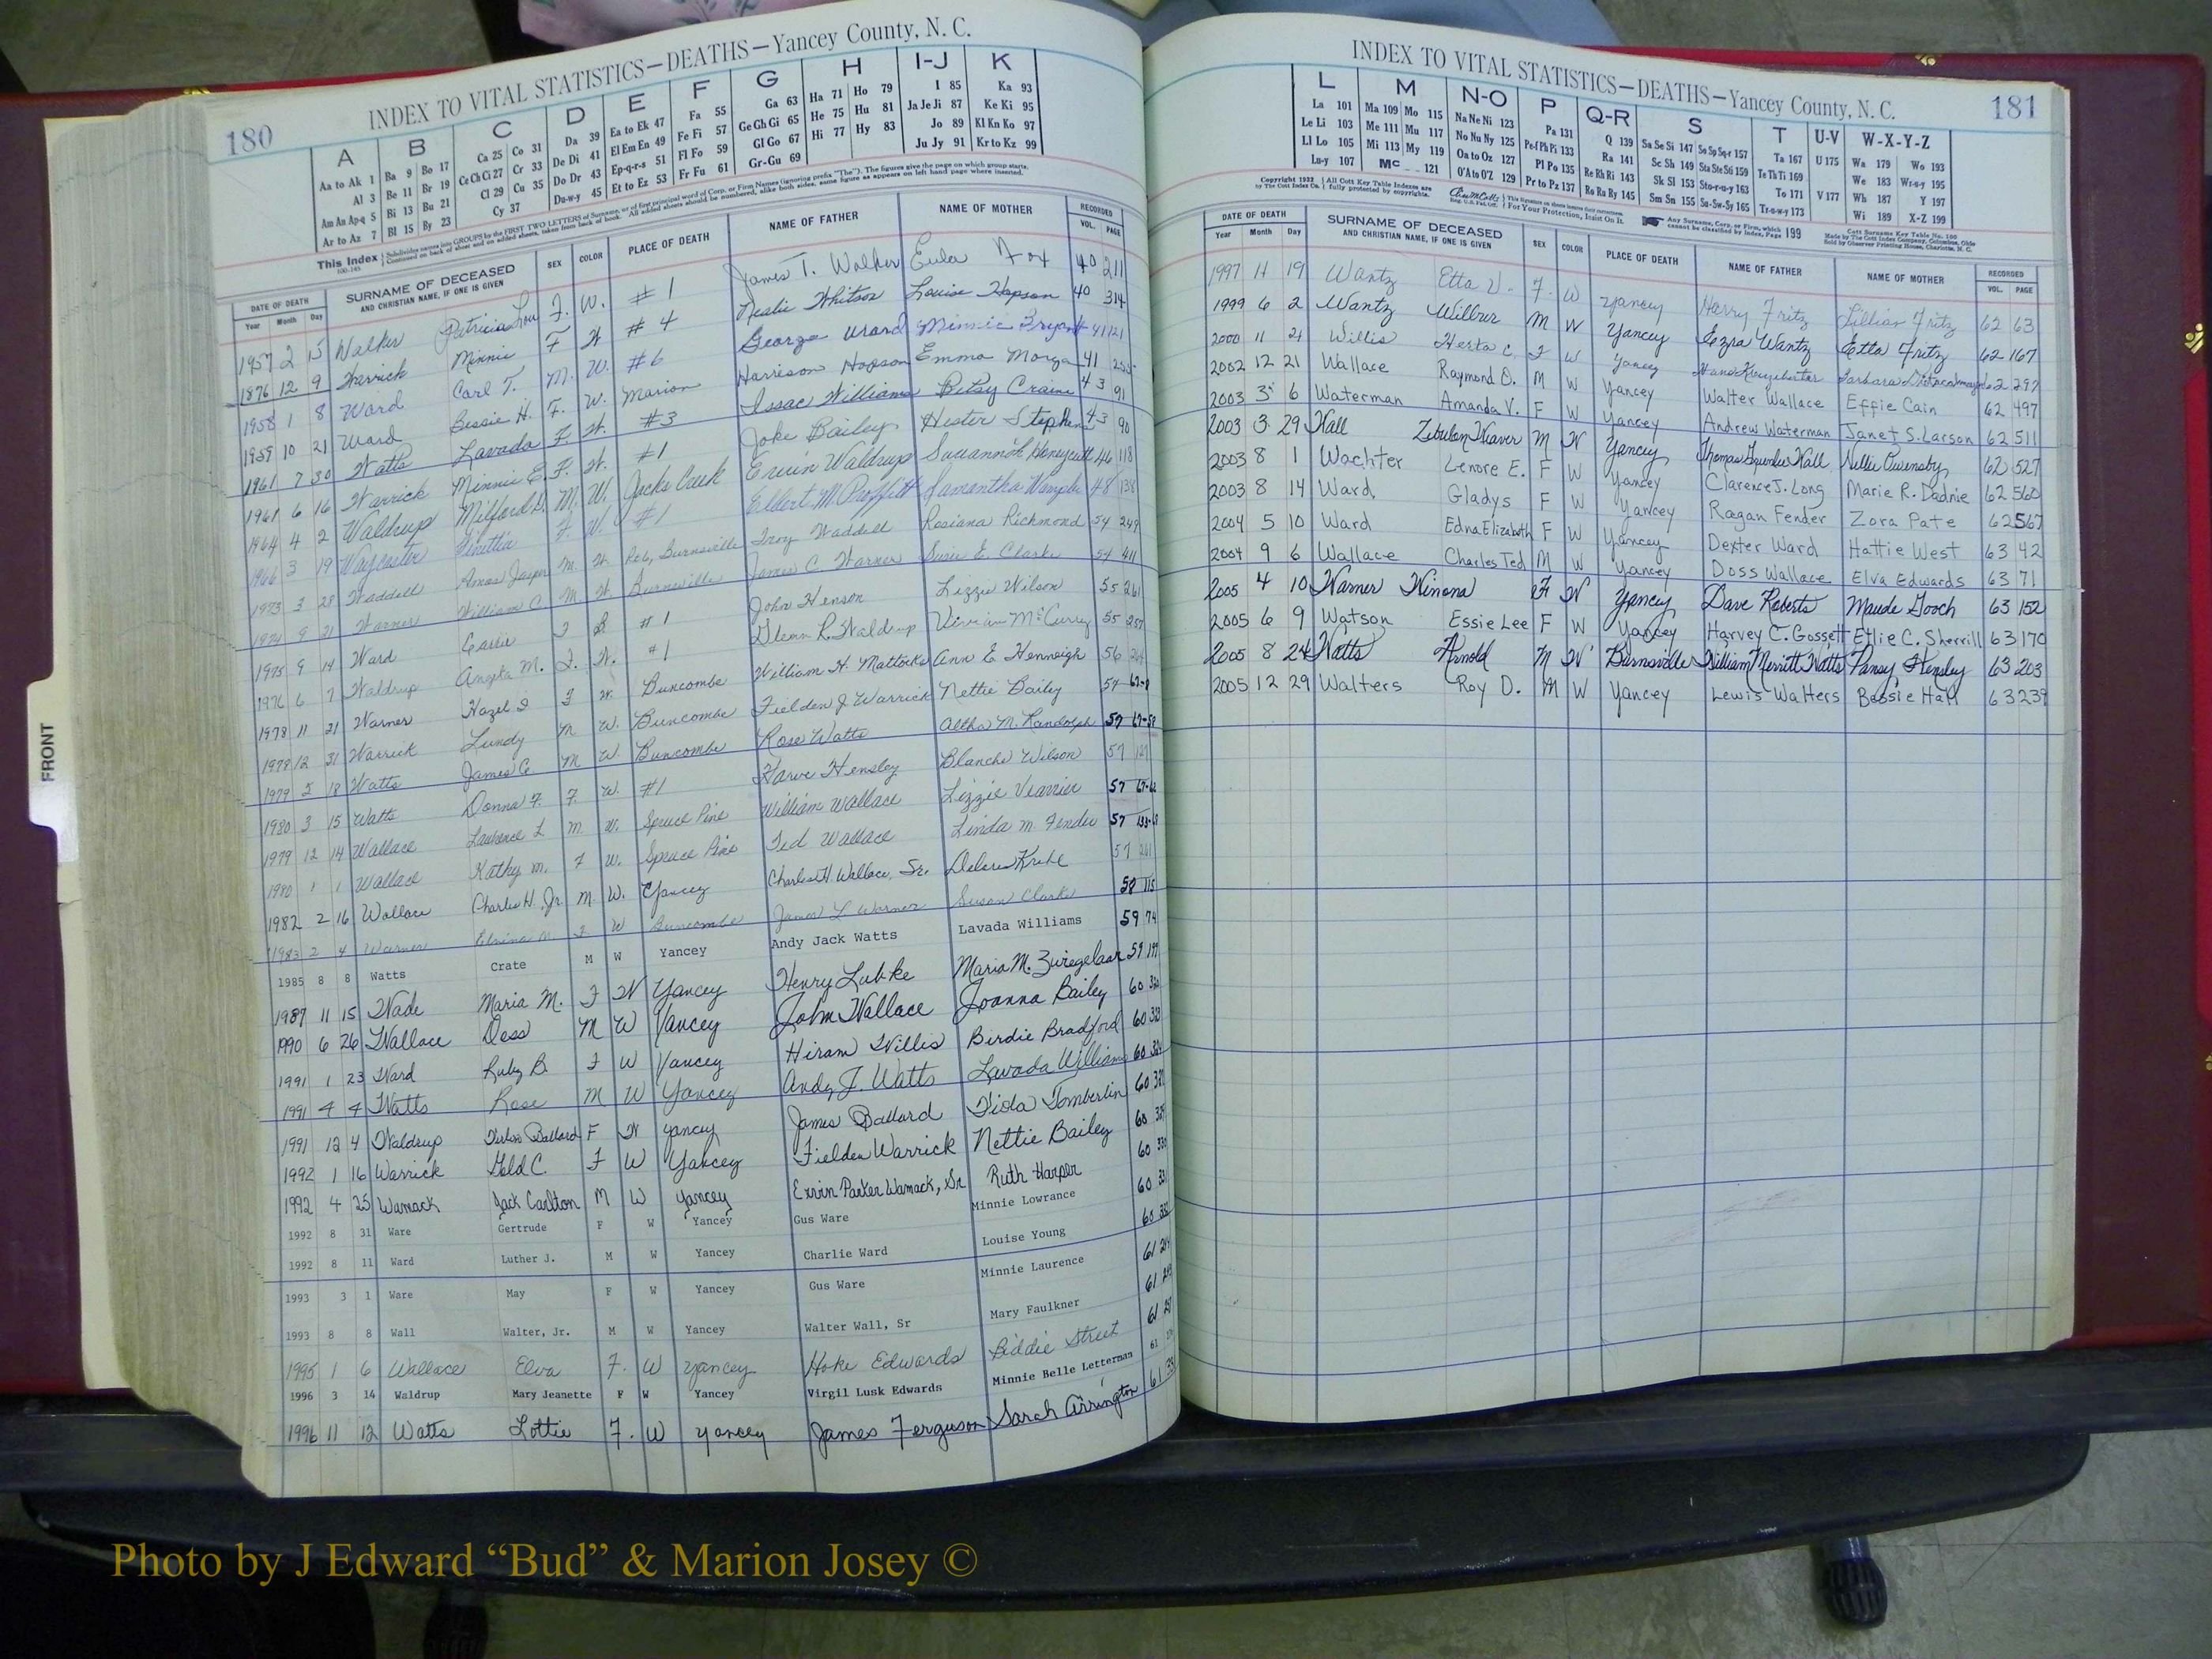 180
INDEX TO VITAL STATISTICS—DEATHS—Yancey County, N. C.
A B C D E F G H I-J K
Aa to Ak 1 Ba 9 Bo 17 Ca 25 Co 31 Da 39 Ea to Ek 47 Fa 55 Ga 63 Ha 71 Ho 79 I 85 Ka 93
Al 3 Be 11 Br 19 Ce Ch Ci 27 Cr 33 De Di 41 El Em En 49 Fe Fi 57 Ge Gh Gi 65 He 75 Hu 81 Ja Je Ji 87 Ke Ki 95
Am An Ap-q 5 Bi 13 Bu 21 Cl 29 Cu 35 Do Dr 43 Ep-q-r-s 51 Fl Fo 59 Gl Go 67 Hi 77 Hy 83 Jo 89 Kl Kn Ko 97
Ar to Az 7 Bl 15 By 23 Cy 37 Du-w-y 45 Et to Ez 53 Fr Fu 61 Gr-Gu 69 Ju Jy 91 Kr to Kz 99
DATE OF DEATH SURNAME OF DECEASED SEX COLOR PLACE OF DEATH NAME OF FATHER NAME OF MOTHER RECORDED
Year Month Day AND CHRISTIAN NAME, IF ONE IS GIVEN VOL. PAGE
1957 2 15 Walker Patricia Lou F. W. #1 James T. Walker Eula Fox 40 211
1876 12 9 Warrick Minnie F W #4 Nealie Whitson Louise Hopson 40 314
1958 1 8 Ward Carl T. M. W. #6 George Ward Minnie Bryant 41 121
1959 10 21 Ward Bessie H. F. W. Marion Harrison Hopson Emma Morgan 41
1961 7 30 Watts Lavada F. W. #3 Issac Williams Betsy Craine 43 91
1961 6 16 Warrick Minnie E. F. W. #1 Joke Bailey Hester Stephens 43 90
1964 4 2 Waldrup Milford D. M. W. Jacks Creek Ervin Waldrup Savannah Honeycutt 46 118
1966 3 19 Waycaster F. W. #1 Elbert M. Proffitt Samantha 48 138
1973 3 28 Waddell Amos Jasper M. W. Burnsville Troy Waddell Rosiana Richmond 54 249
1974 9 21 Warner William C. M. W. Burnsville James C. Warner Susie E. Clarke 54 411
1975 9 14 Ward Cassie F #1 John Henson Lizzie Wilson 55 261
1976 6 7 Waldrup Angela M. F. W. #1 Glenn R. Waldrup Vivian McCurry 55 257
1978 11 21 Warner Hazel F W. Buncombe William H. Mattocks Ann E. Henneigh 56
1979 12 31 Warrick Lundy M W. Buncombe Fielden J Warrick Nettie Bailey
1979 5 18 Watts James C. M W Buncombe Rose Watts Altha M. Randolph 57 67-58
1980 3 15 Watts Donna F. F. W. #1 Harve Hensley Blanche Wilson 57 127
1979 12 14 Wallace Lawrence L M. W. Spruce Pine William Wallace Lizzie 57
1980 1 1 Wallace Kathy M. F W. Spruce Pine Ted Wallace Linda M. Fender 57
1982 2 16 Wallace Charles H. Jr. M. W. Yancey Charles H. Wallace, Sr. Delores 57 211
1983 2 4 Warner F W Buncombe James L Warner Susan Clarke 58 115
1985 8 8 Watts Crate M W Yancey Andy Jack Watts Lavada Williams 59 74
1987 11 15 Wade Maria M. F W Yancey Henry Lubke Maria M. Zuregelaar 59 199
1990 6 26 Wallace Doss M W Yancey John Wallace Joanna Bailey 60
1991 1 23 Ward Ruby B. F W Yancey Hiram Willis Birdie Bradford 60 323
1991 4 4 Watts Rose M W Yancey Andy J. Watts Lavada Williams 60
1991 12 4 Waldrup Ballard F W Yancey James Ballard Tomberlin 60
1992 1 16 Warrick Gold C. F W Yancey Fielden Warrick Nettie Bailey 60
1992 4 25 Wamack Jack Carlton M W Yancey Ervin Parker Wamack, Sr Ruth Harper 60
1992 8 31 Ware Gertrude F W Yancey Gus Ware Minnie Lowrance 60 331
1992 8 11 Ward Luther J. M W Yancey Charlie Ward Louise Young 60
1993 3 1 Ware May F W Yancey Gus Ware Minnie Laurence 61
1993 8 8 Wall Walter, Jr. M W Yancey Walter Wall, Sr Mary Faulkner 61
1995 1 6 Wallace Elva F. W Yancey Hoke Edwards Biddie Street 61
1996 3 14 Waldrup Mary Jeanette F W Yancey Virgil Lusk Edwards Minnie Belle Letterman 61
1996 11 12 Watts Lottie F. W Yancey James Ferguson Sarah Arrington 61
FRONT
INDEX TO VITAL STATISTICS—DEATHS—Yancey County, N. C.
181
L M N-O P Q-R S T U-V W-X-Y-Z
La 101 Ma 109 Mo 115 Na Ne Ni 123 Pa 131 Q 139 Sa Se Si 147 Se Sp Sq-r 157 Ta 167 U 175 Wa 179 Wo 193
Le Li 103 Me 111 Mu 117 No Nu Ny 125 Pe-f Ph Pi 133 Ra 141 Sc Sh 149 Sta Ste Sti 159 Te Th Ti 169 We 183 Wr-u-y 195
Ll Lo 105 Mi 113 My 119 Oa to Oz 127 Pl Po 135 Re Rh Ri 143 Sk Sl 153 Sto-r-u-y 163 To 171 V 177 Wh 187 Y 197
Lu-y 107 Mc 121 O'A to O'Z 129 Pr to Pz 137 Ro Ru Ry 145 Sm Sn 155 Su-Sw-Sy 165 Tr-u-w-y 173 Wi 189 X-Z 199
DATE OF DEATH SURNAME OF DECEASED SEX COLOR PLACE OF DEATH NAME OF FATHER NAME OF MOTHER RECORDED
Year Month Day AND CHRISTIAN NAME, IF ONE IS GIVEN VOL. PAGE
1997 11 19 Wantz Etta V. F. W Yancey Harry Fritz Lillian Fritz 62 63
1999 6 2 Wantz Wilbur M W Yancey Ezra Wantz Etta Fritz 62 167
2000 11 21 Willis Herta C. F W Yancey Hans Barbara 62 297
2002 12 21 Wallace Raymond O. M W Yancey Walter Wallace Effie Cain 62 497
2003 3 6 Waterman Amanda V. F W Yancey Andrew Waterman Janet S. Larson 62 511
2003 3 29 Wall Zebulon Weaver M W Yancey Thomas Wall Nellie Owensby 62 527
2003 8 1 Wachter Lenore E. F W Yancey Clarence J. Long Marie R. Dadnie 62 560
2003 8 14 Ward Gladys F W Yancey Ragan Fender Zora Pate 62 567
2004 5 10 Ward Edna Elizabeth F W Yancey Dexter Ward Hattie West 63 42
2004 9 6 Wallace Charles Ted M W Yancey Doss Wallace Elva Edwards 63 71
2005 4 10 Warner Winona F W Yancey Dave Roberts Maude Gooch 63 152
2005 6 9 Watson Essie Lee F W Yancey Harvey C. Gossett Etlie C. Sherrill 63 170
2005 8 24 Watts Arnold M W Burnsville William Merritt Watts Pansy Hensley 63 203
2005 12 29 Walters Roy D. M W Yancey Lewis Walters Bessie Hall 63 239
Photo by J Edward “Bud” & Marion Josey ©